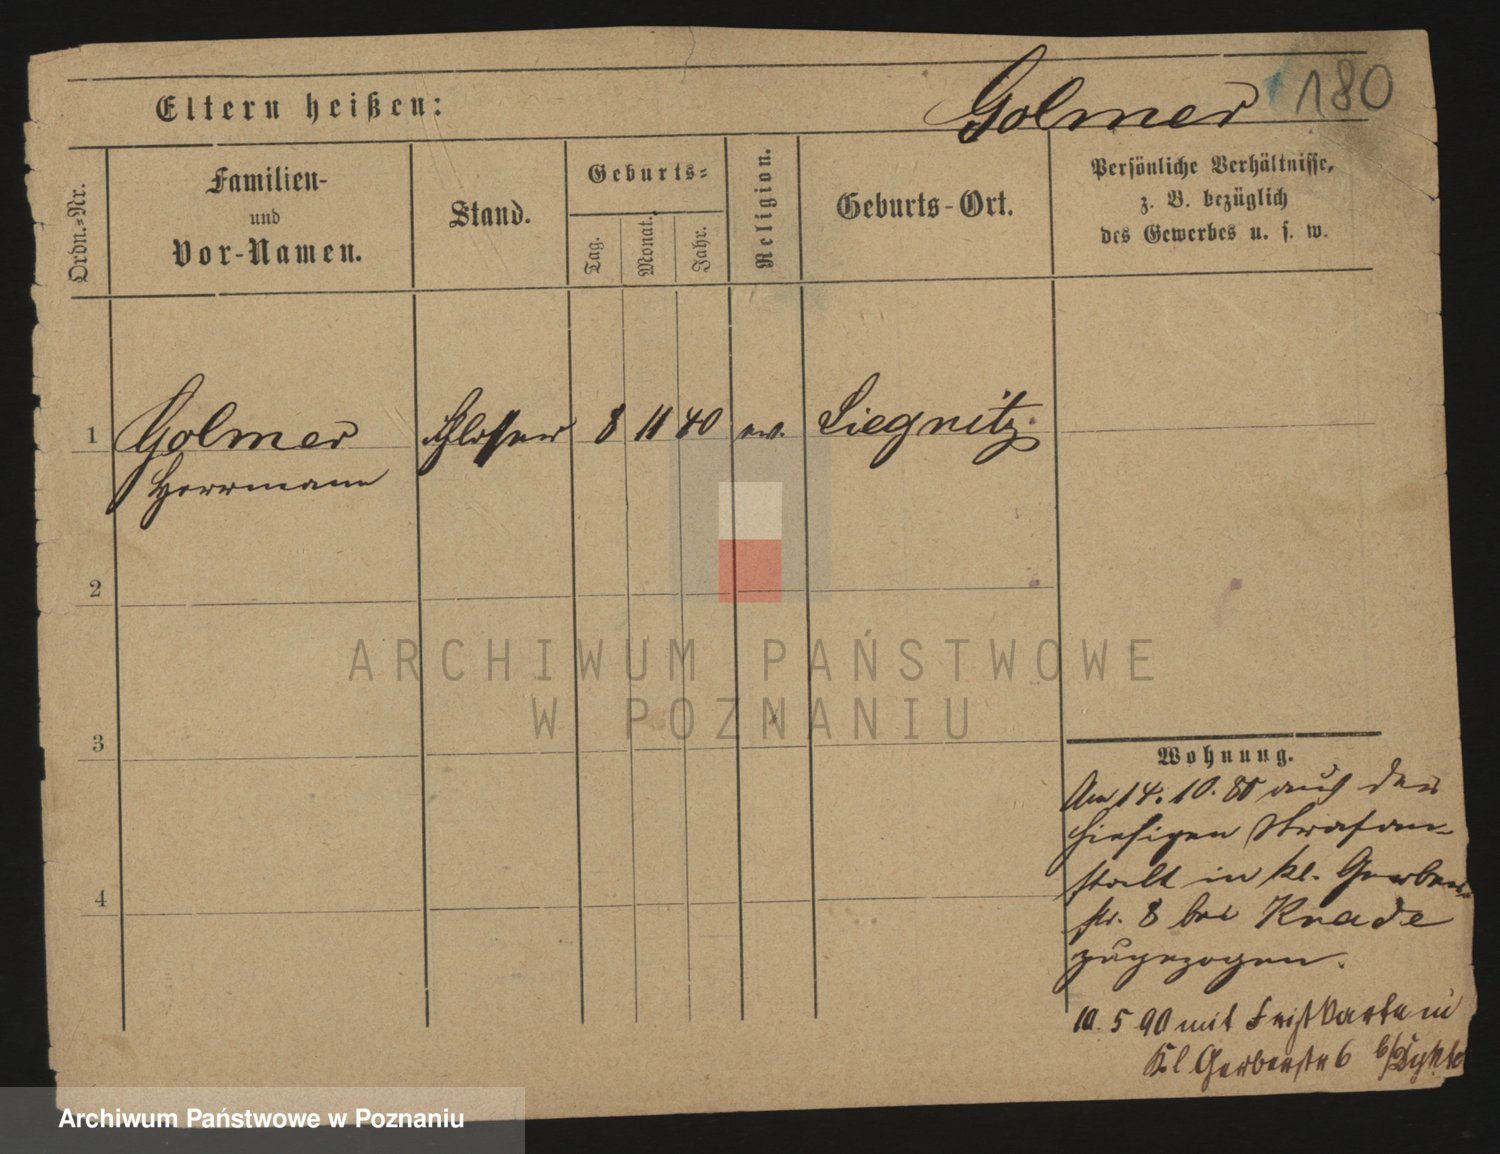 Golmer 180
Eltern heißen:
Ordn.-Nr.
Familien-
und
Vor-Namen.
Stand.
Geburts-
Tag.
Monat.
Jahr.
Religion.
Geburts-Ort.
Persönliche Verhältnisse,
z. B. bezüglich
des Gewerbes u. s. w.
1 Golmer Schlosser 8 11 40 ev. Liegnitz
Herrmann
2
3
4
ARCHIWUM PAŃSTWOWE
W POZNANIU
Wohnung.
Am 14. 10. 85 aus der
hiesigen Strafan-
stalt in kl. Gerber-
str. 8 bei Krade
zugezogen.
10. 5 90 mit Frist Karte in
Kl Gerberstr 6
Archiwum Państwowe w Poznaniu